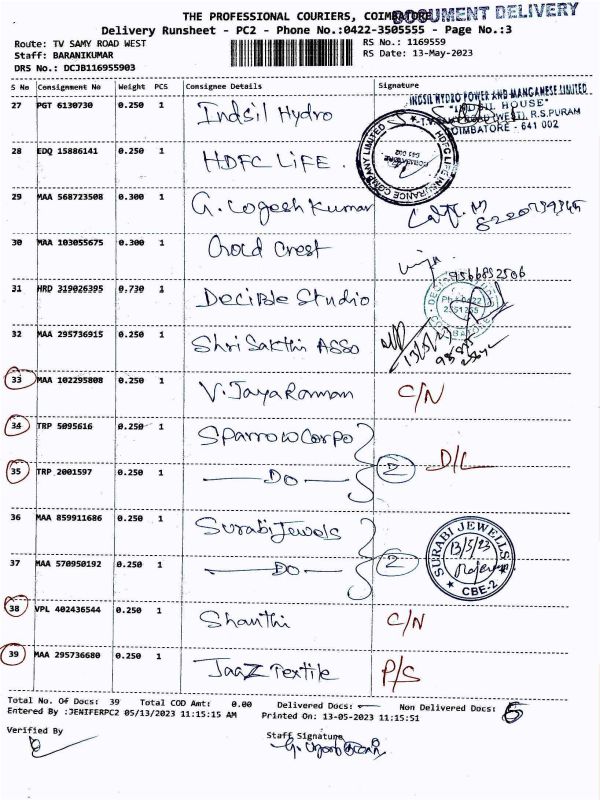 THE PROFESSIONAL COURIERS, COIMBATORE
DOCUMENT DELIVERY
Delivery Runsheet - PC2 - Phone No.:0422-3505555 - Page No.:3
Route: TV SAMY ROAD WEST
RS No.: 1169559
Staff: BARANIKUMAR
RS Date: 13-May-2023
DRS No.: DCJB116955903
S No Consignment No Weight PCS Consignee Details Signature
27 PGT 6130730 0.250 1 Indsil Hydro
INDSIL HYDRO POWER AND MANGANESE LIMITED
"INDSIL HOUSE"
(WEST), R.S.PURAM
COIMBATORE - 641 002
28 EDQ 15886141 0.250 1 HDFC LIFE.
HDFC LIFE INSURANCE COMPANY LIMITED
29 MAA 568723508 0.300 1 G. Logesh Kumar
30 MAA 103055675 0.300 1 Gold Crest
9566852506
31 HRD 319026395 0.730 1 Decible Studio
32 MAA 295736915 0.250 1 Shri Sakthi ASSO
13/5/23
33 MAA 102295808 0.250 1 V. Jaya Raman C/N
34 TRP 5095616 0.250 1 Sparrow Corpo
2 D/L
35 TRP 2001597 0.250 1 — DO —
36 MAA 859911686 0.250 1 Surabi Jewels
SURABI JEWELLS
13/5/23
CBE-2
37 MAA 570950192 0.250 1 — DO — 2
38 VPL 402436544 0.250 1 Shanthi C/N
39 MAA 295736680 0.250 1 JaaZ Textile P/S
Total No. Of Docs: 39 Total COD Amt: 0.00 Delivered Docs: Non Delivered Docs: 5
Entered By :JENIFERPC2 05/13/2023 11:15:15 AM Printed On: 13-05-2023 11:15:51
Verified By
Staff Signature